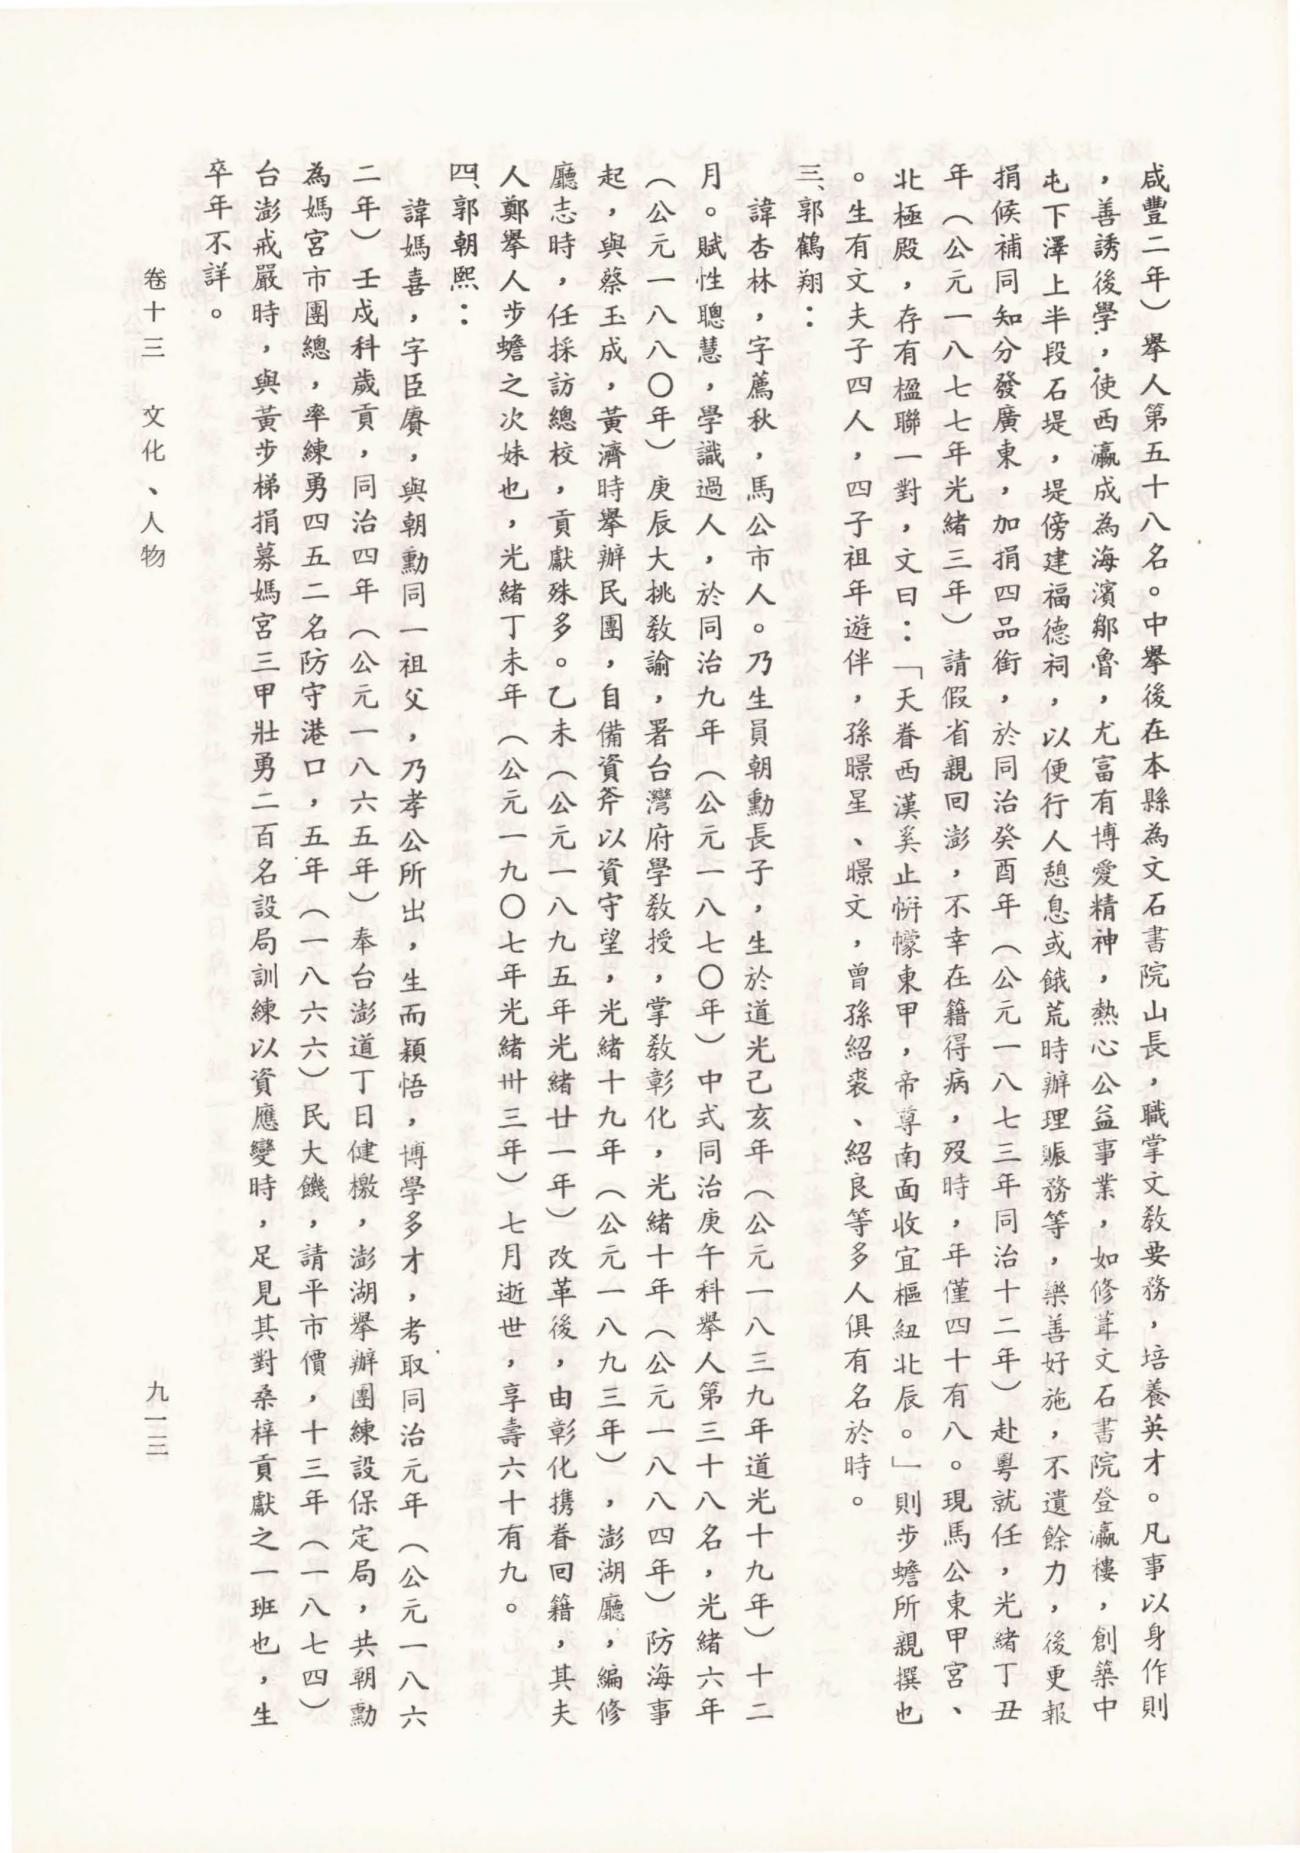 咸豐二年）舉人第五十八名。中舉後在本縣為文石書院山長，職掌文教要務，培養英才。凡事以身作則
，善誘後學，使西瀛成為海濱鄒魯，尤富有博愛精神，熱心公益事業，如修葺文石書院登瀛樓，創築中
屯下澤上半段石堤，堤傍建福德祠，以便行人憩息或餓荒時辦理賑務等，樂善好施，不遺餘力，後更報
捐候補同知分發廣東，加捐四品銜，於同治癸酉年（公元一八七三年同治十二年）赴粵就任，光緒丁丑
年（公元一八七七年光緒三年）請假省親回澎，不幸在籍得病，歿時，年僅四十有八。現馬公東甲宮、
北極殿，存有楹聯一對，文曰：「天眷西漢奚止帡幪東甲，帝尊南面收宜樞紐北辰。」則步蟾所親撰也
。生有文夫子四人，四子祖年遊伴，孫暻星、暻文，曾孫紹裘、紹良等多人俱有名於時。
三、郭鶴翔：
諱杏林，字薦秋，馬公市人。乃生員朝勳長子，生於道光己亥年（公元一八三九年道光十九年）十二
月。賦性聰慧，學識過人，於同治九年（公元一八七〇年）中式同治庚午科舉人第三十八名，光緒六年
（公元一八八〇年）庚辰大挑教諭，署台灣府學教授，掌教彰化，光緒十年（公元一八八四年）防海事
起，與蔡玉成，黃濟時舉辦民團，自備資斧以資守望，光緒十九年（公元一八九三年），澎湖廳，編修
廳志時，任採訪總校，貢獻殊多。乙未（公元一八九五年光緒廿一年）改革後，由彰化携眷回籍，其夫
人鄭舉人步蟾之次妹也，光緒丁未年（公元一九〇七年光緒卅三年）七月逝世，享壽六十有九。
四、郭朝熙：
諱媽喜，字臣賡，與朝勳同一祖父，乃孝公所出，生而穎悟，博學多才，考取同治元年（公元一八六
二年）壬戍科歲貢，同治四年（公元一八六五年）奉台澎道丁日健檄，澎湖舉辦團練設保定局，共朝勳
為媽宮市團總，率練勇四五二名防守港口，五年（一八六六）民大饑，請平市價，十三年（一八七四）
台澎戒嚴時，與黃步梯捐募媽宮三甲壯勇二百名設局訓練以資應變時，足見其對桑梓貢獻之一班也，生
卒年不詳。
卷十三　文化、人物
九一三